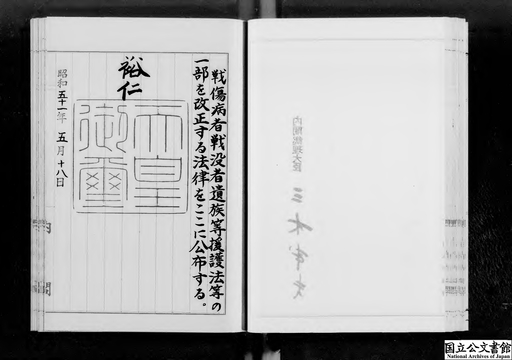 戦傷病者戦没者遺族等援護法等の
一部を改正する法律をここに公布する。
裕仁
天皇
御璽
昭和五十一年五月十八日
内閣総理大臣
国立公文書館
National Archives of Japan